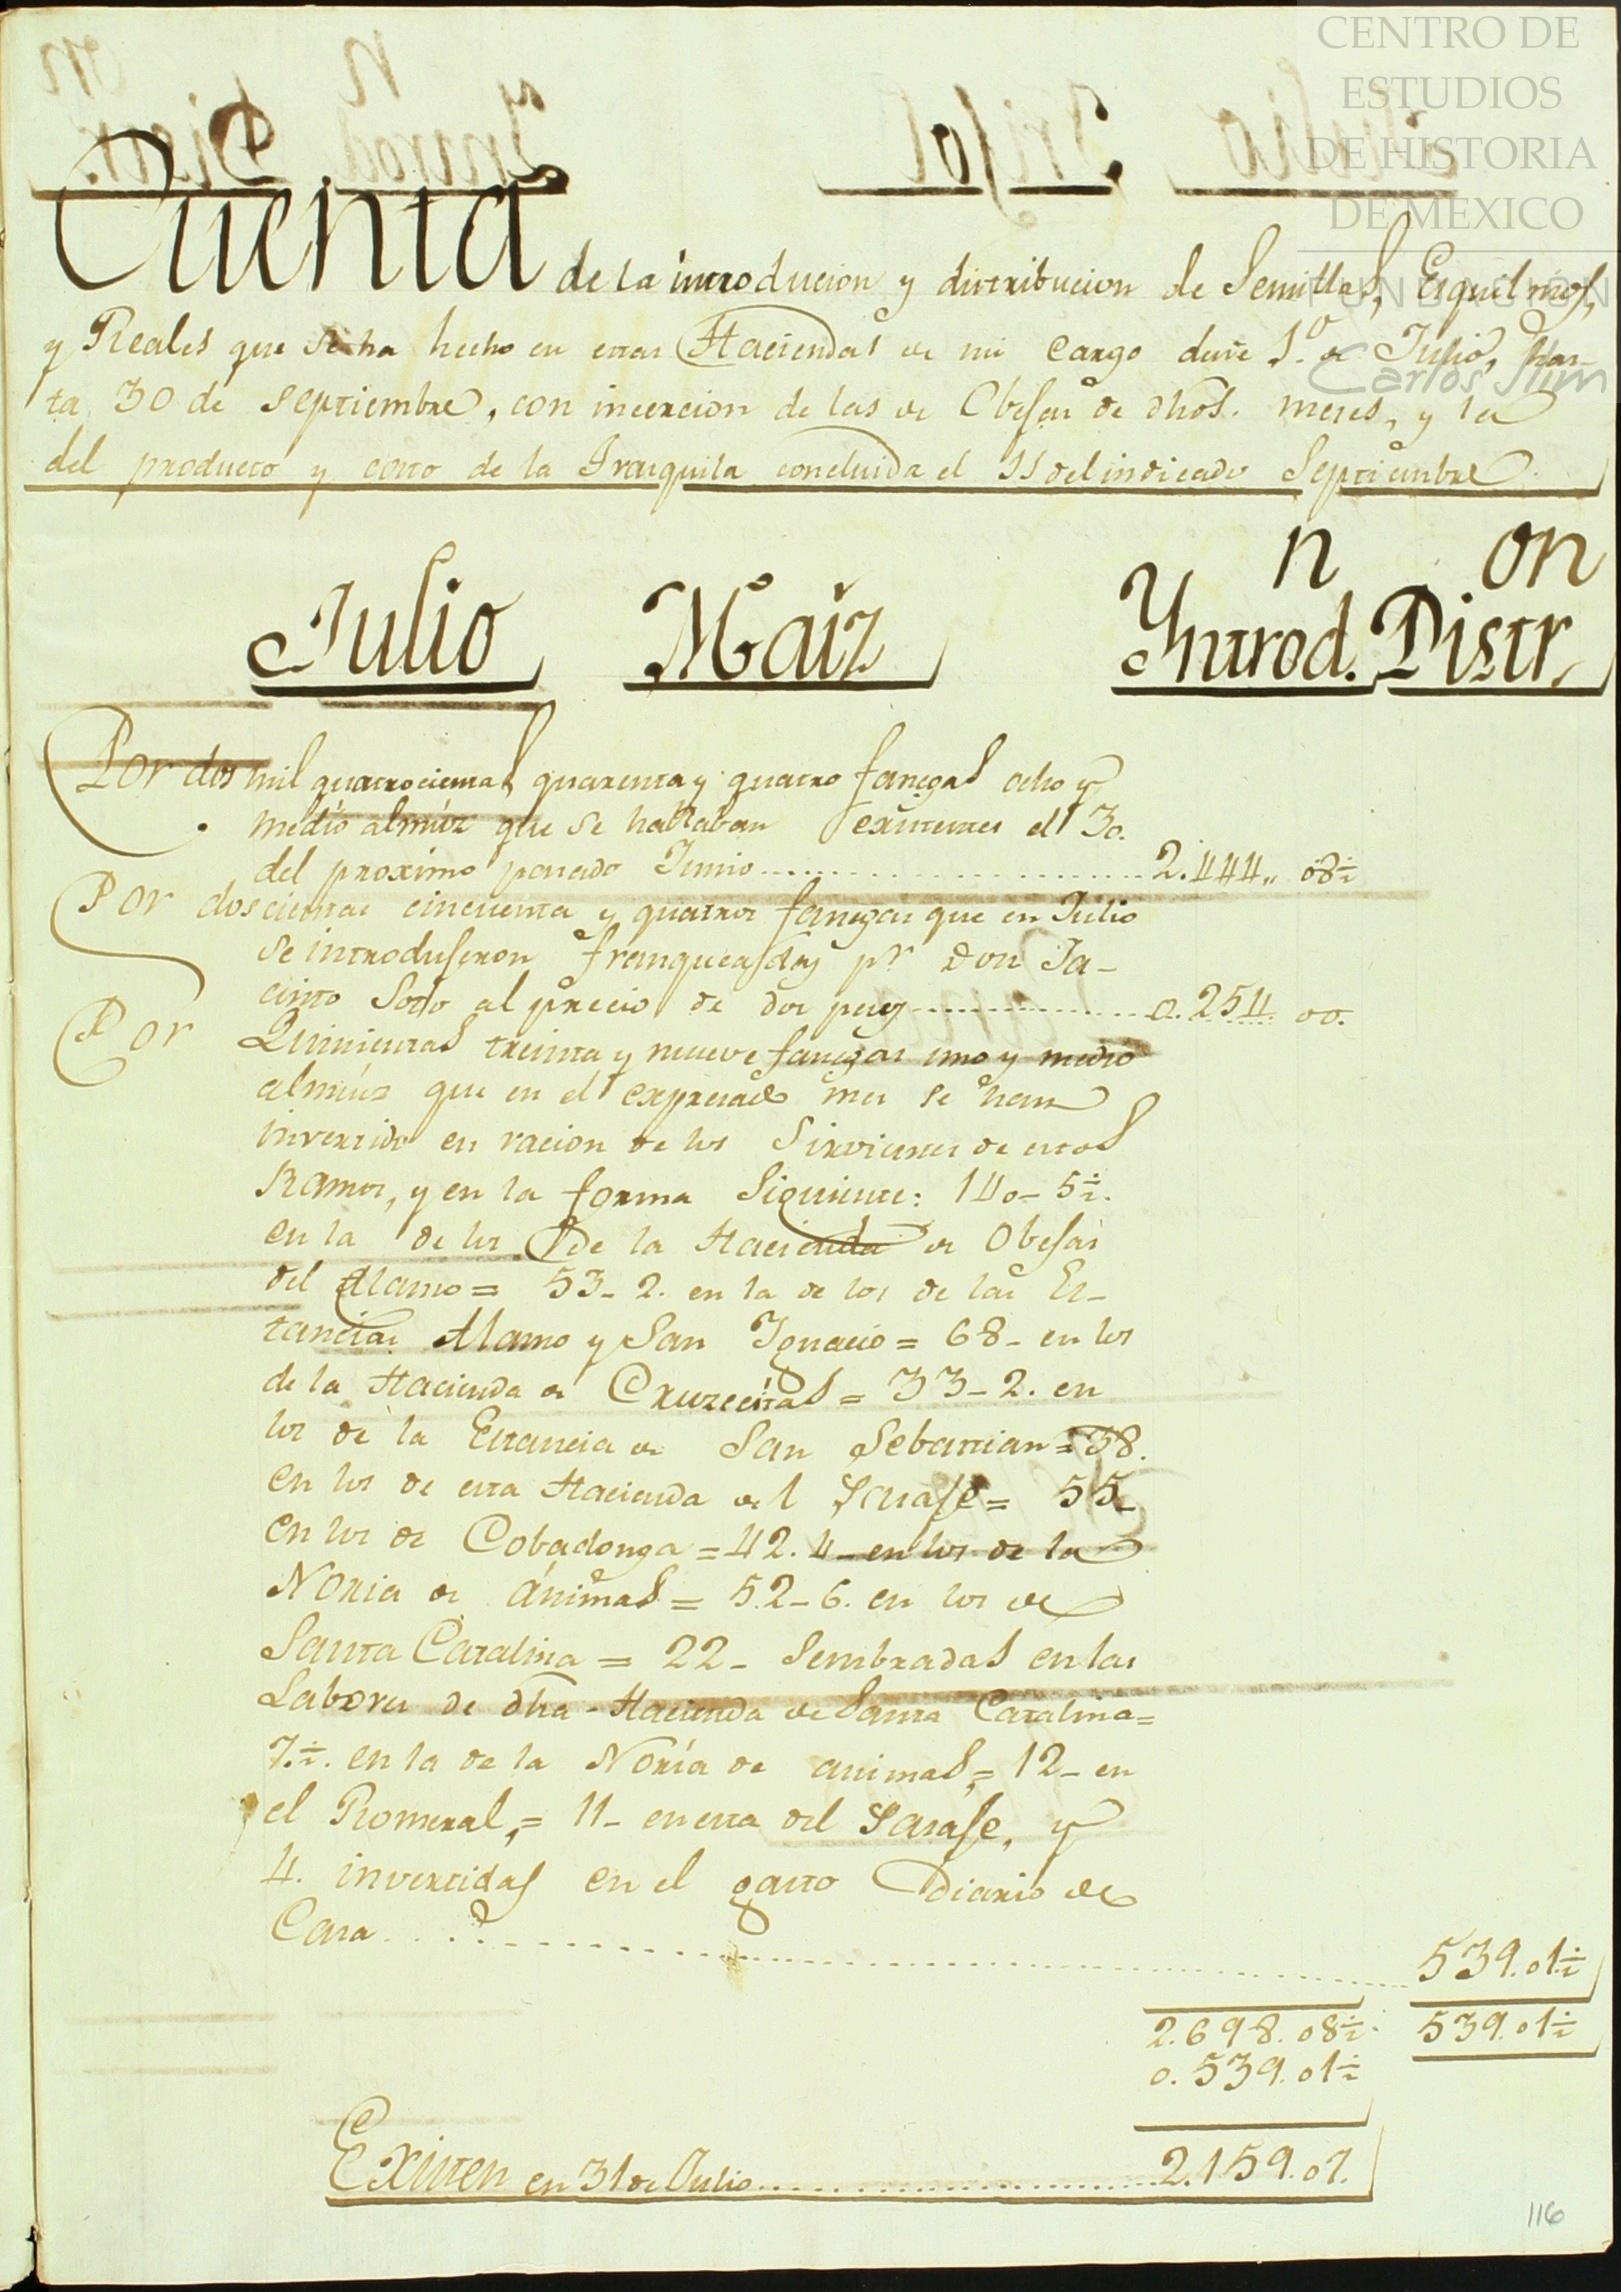 CENTRO DE
ESTUDIOS
DE HISTORIA
DE MEXICO
FUNDACIÓN
Carlos Slim
Cuenta de la introducion y distribucion de Semillas, Esquilmos,
y Reales que se ha hecho en estas Haciendas de mi cargo desde 1.o de Julio, has-
ta 30 de Septiembre, con insercion de las de Obejas de dhos. meses, y la
del producto y costo de la Trasquila concluida el 11 del indicado Septiembre.
Julio Maiz Introd.n Distr.on
Por dos mil quatrocientas quarenta y quatro fanegas ocho y
medio almúz que se hallaban existentes el 30.
del proximo pasado Junio 2.444,, 08½
Por doscientas cincuenta y quatro fanegas que en Julio
se introdujeron franqueadas pr. Don Ja-
cinto Soto al precio de dos pesos 0.254. 00.
Por Quinientas treinta y nueve fanegas uno y medio
almúz que en el expresado mes se han
invertido en racion de los Sirvientes de estos
Ramos, y en la forma Siguiente: 140- 5½.
en la de los de la Hacienda de Obejas
del Alamo= 53- 2. en la de los de las Es-
tancias Alamo y San Ignacio= 68- en los
de la Hacienda de Cruzecitas= 33-2. en
los de la Estancia de San Sebastian=38.
en los de esta Hacienda del Jarase= 55-
en los de Cobadonga=42.4- en los de la
Noria de ánimas= 52-6. en los de
Santa Catalina= 22- Sembradas en las
Labores de dha. Hacienda de Santa Catalina=
7.½. en la de la Noría de animas,= 12- en
el Romeral,= 11- en esta del Jarase, y
4. invertidas en el gasto Diario de
Casa 539.01½
2.698.08½. 539.01½
0.539.01½
Existen en 31 de Julio 2.159.07.
116